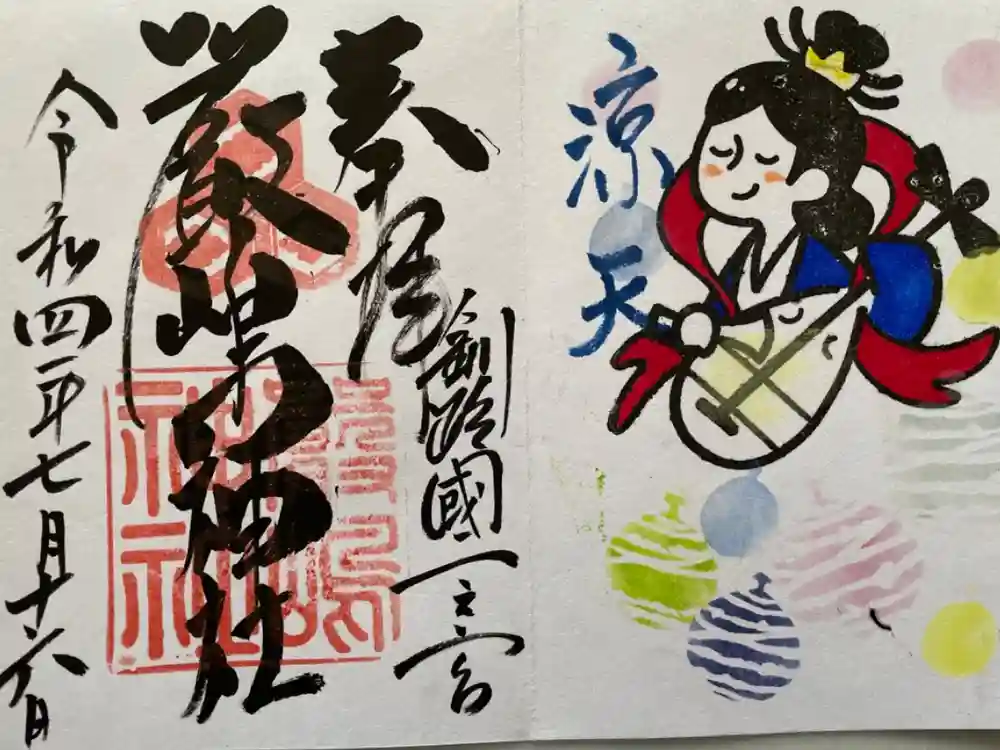 涼天
奉拝
釧路國一之宮
厳島神社
令和四年七月十六日